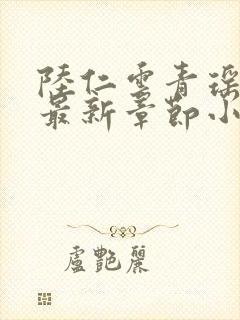 陸仁雲青瑶
最新章節小
盧艷麗